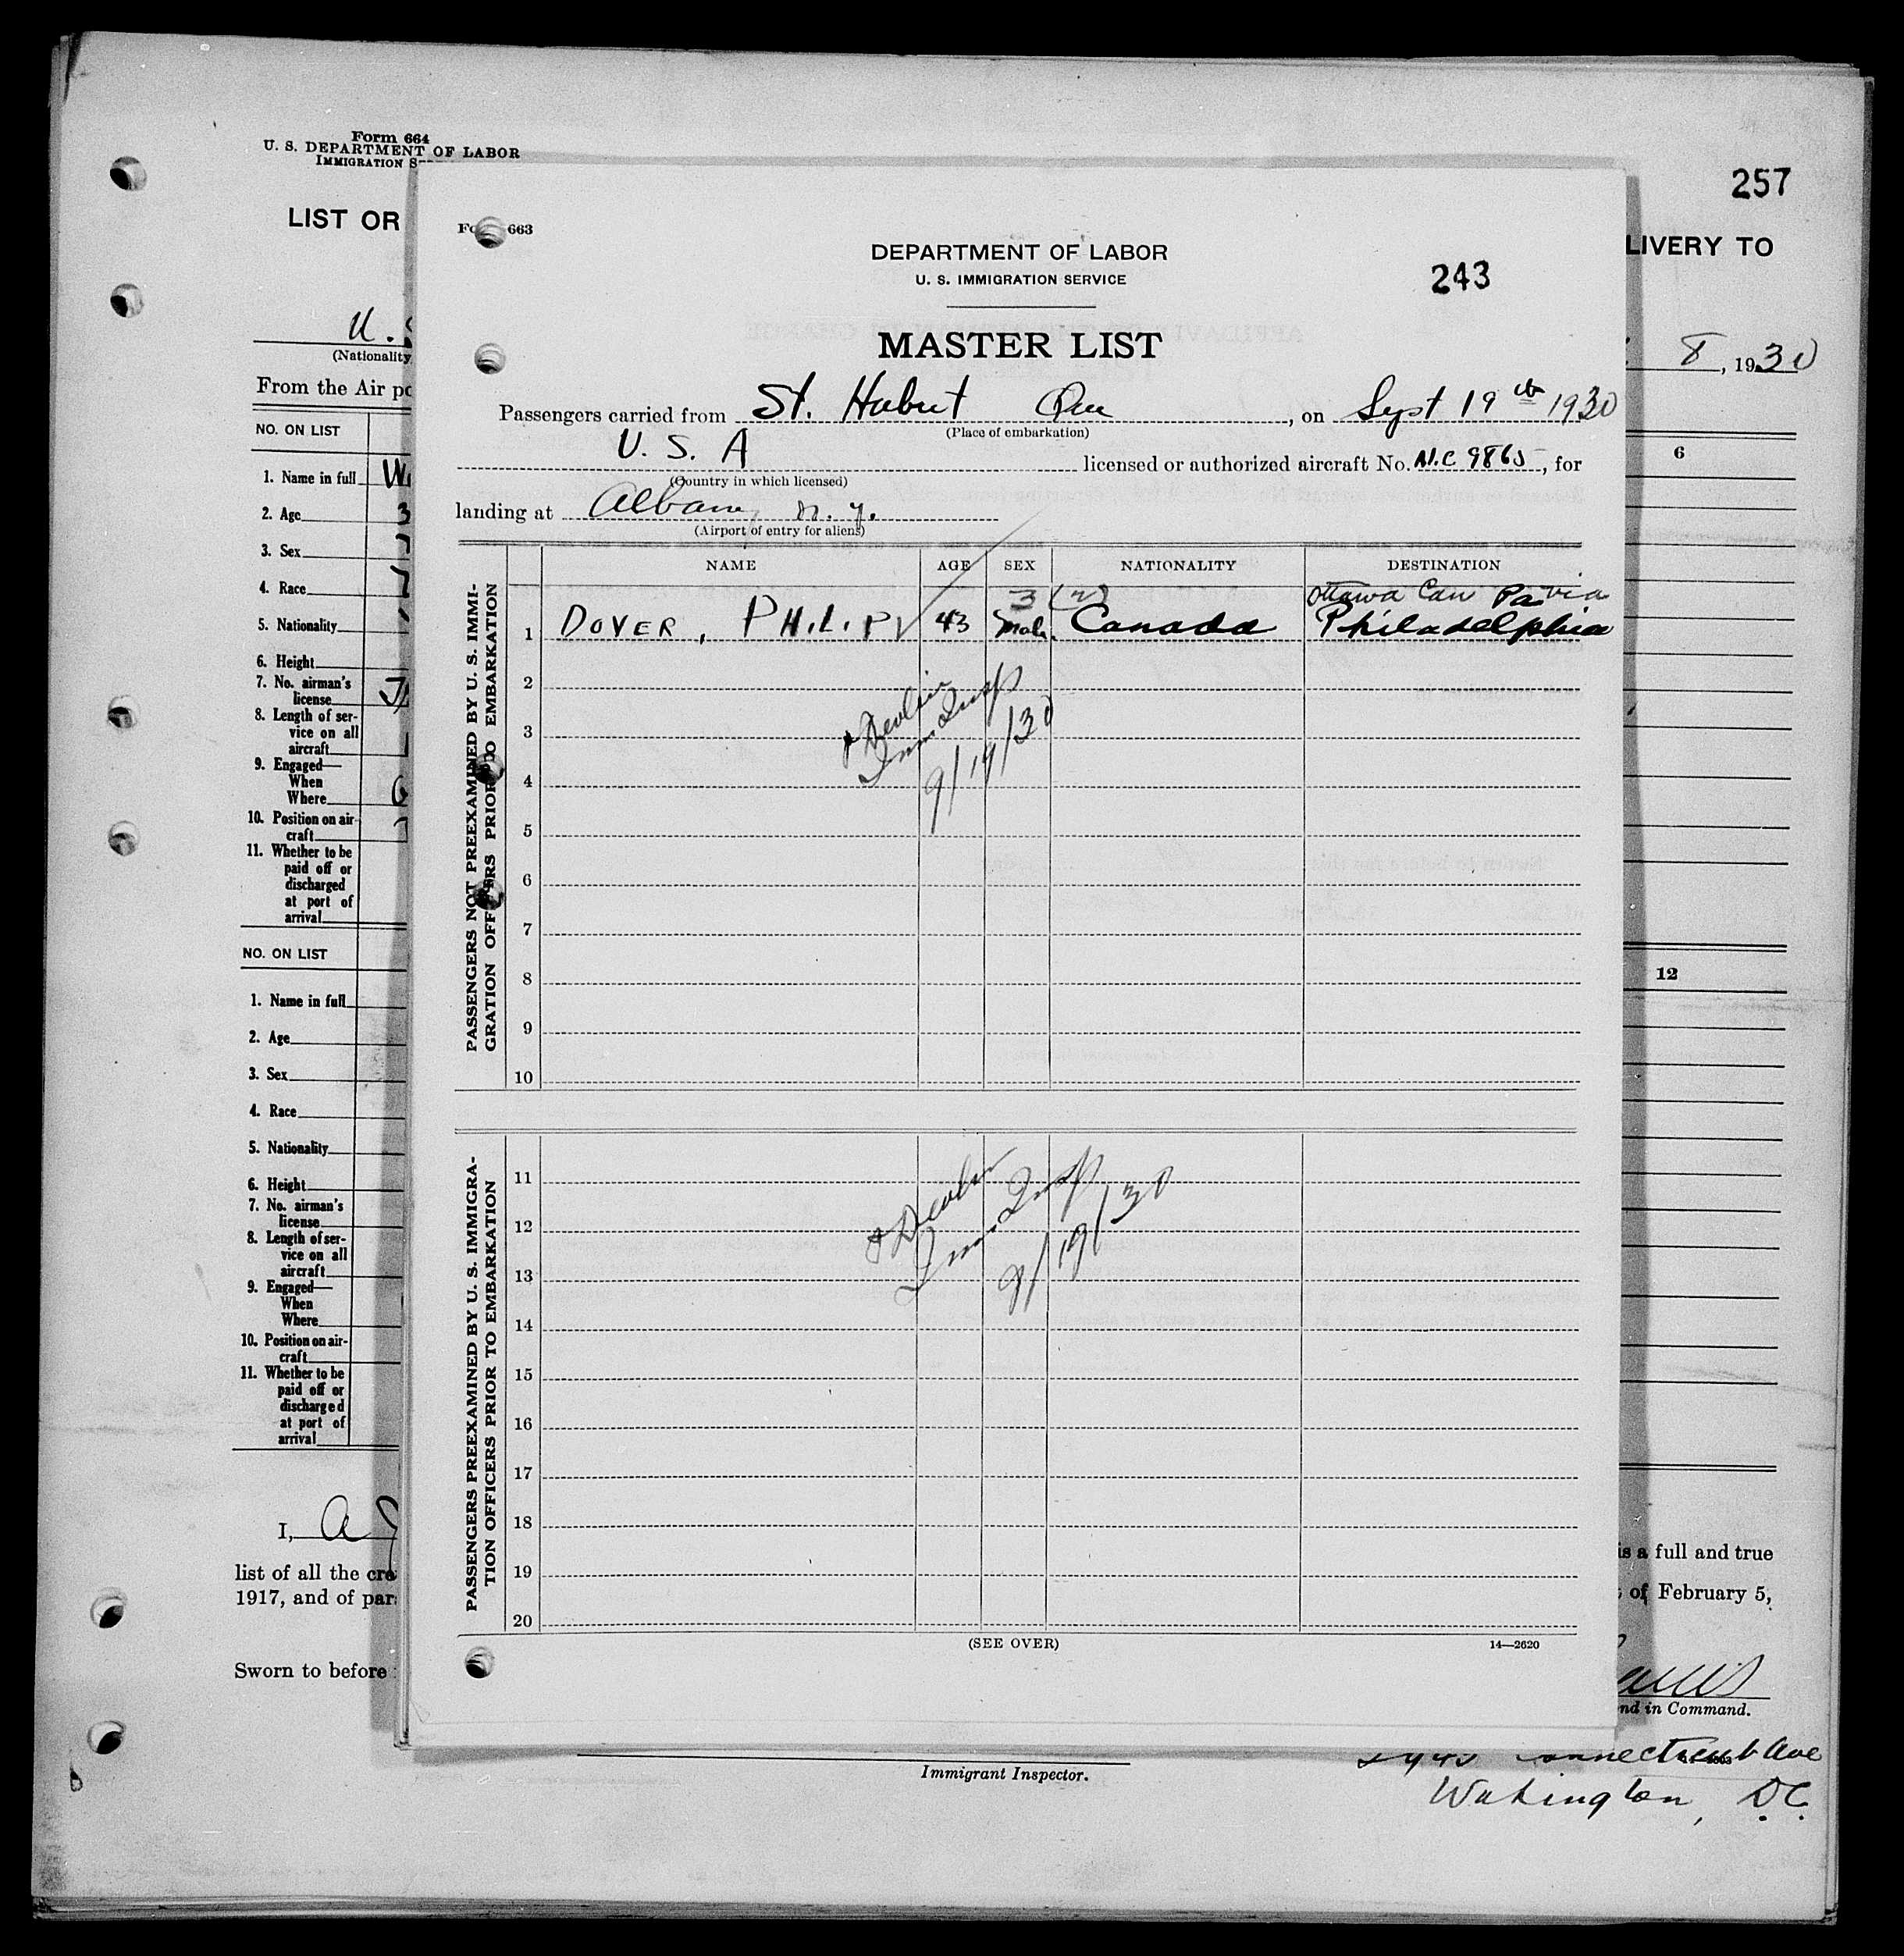 Form 664
U. S. DEPARTMENT OF LABOR
IMMIGRATION S
257
LIST OR
LIVERY TO
U. S
(Nationality
8, 1930
From the Air po
NO. ON LIST
6
1. Name in full
2. Age 3
3. Sex
4. Race
5. Nationality
6. Height
7. No. airman's
license
8. Length of ser-
vice on all
aircraft
9. Engaged—
When
Where
10. Position on air-
craft
11. Whether to be
paid off or
discharged
at port of
arrival
NO. ON LIST
12
1. Name in full
2. Age
3. Sex
4. Race
5. Nationality
6. Height
7. No. airman's
license
8. Length of ser-
vice on all
aircraft
9. Engaged—
When
Where
10. Position on air-
craft
11. Whether to be
paid off or
discharged
at port of
arrival
I, A
is a full and true
list of all the cre
of February 5,
1917, and of par
Sworn to before
nd in Command.
Immigrant Inspector.
Connecticut Ave
Wahington, D.C.
Fo 663
DEPARTMENT OF LABOR
U. S. IMMIGRATION SERVICE
243
MASTER LIST
Passengers carried from St. Hubert Que, on Sept 19th 1930
(Place of embarkation)
U. S. A licensed or authorized aircraft No. N.C 9865, for
(Country in which licensed)
landing at Albany N. Y.
(Airport of entry for aliens)
NAME AGE SEX NATIONALITY DESTINATION
PASSENGERS NOT PREEXAMINED BY U. S. IMMI-
GRATION OFFICERS PRIOR TO EMBARKATION
3 (2) Ottawa Can Pa via
1 DOVER, PHILIP 43 Male. Canada Philadelphia
2
3
4
5
6
7
8
9
10
Devlin
Imm. Insp
9/19/30
PASSENGERS PREEXAMINED BY U. S. IMMIGRA-
TION OFFICERS PRIOR TO EMBARKATION
11
12
13
14
15
16
17
18
19
20
Devlin
Imm. Insp
9/19/30
(SEE OVER)
14—2620